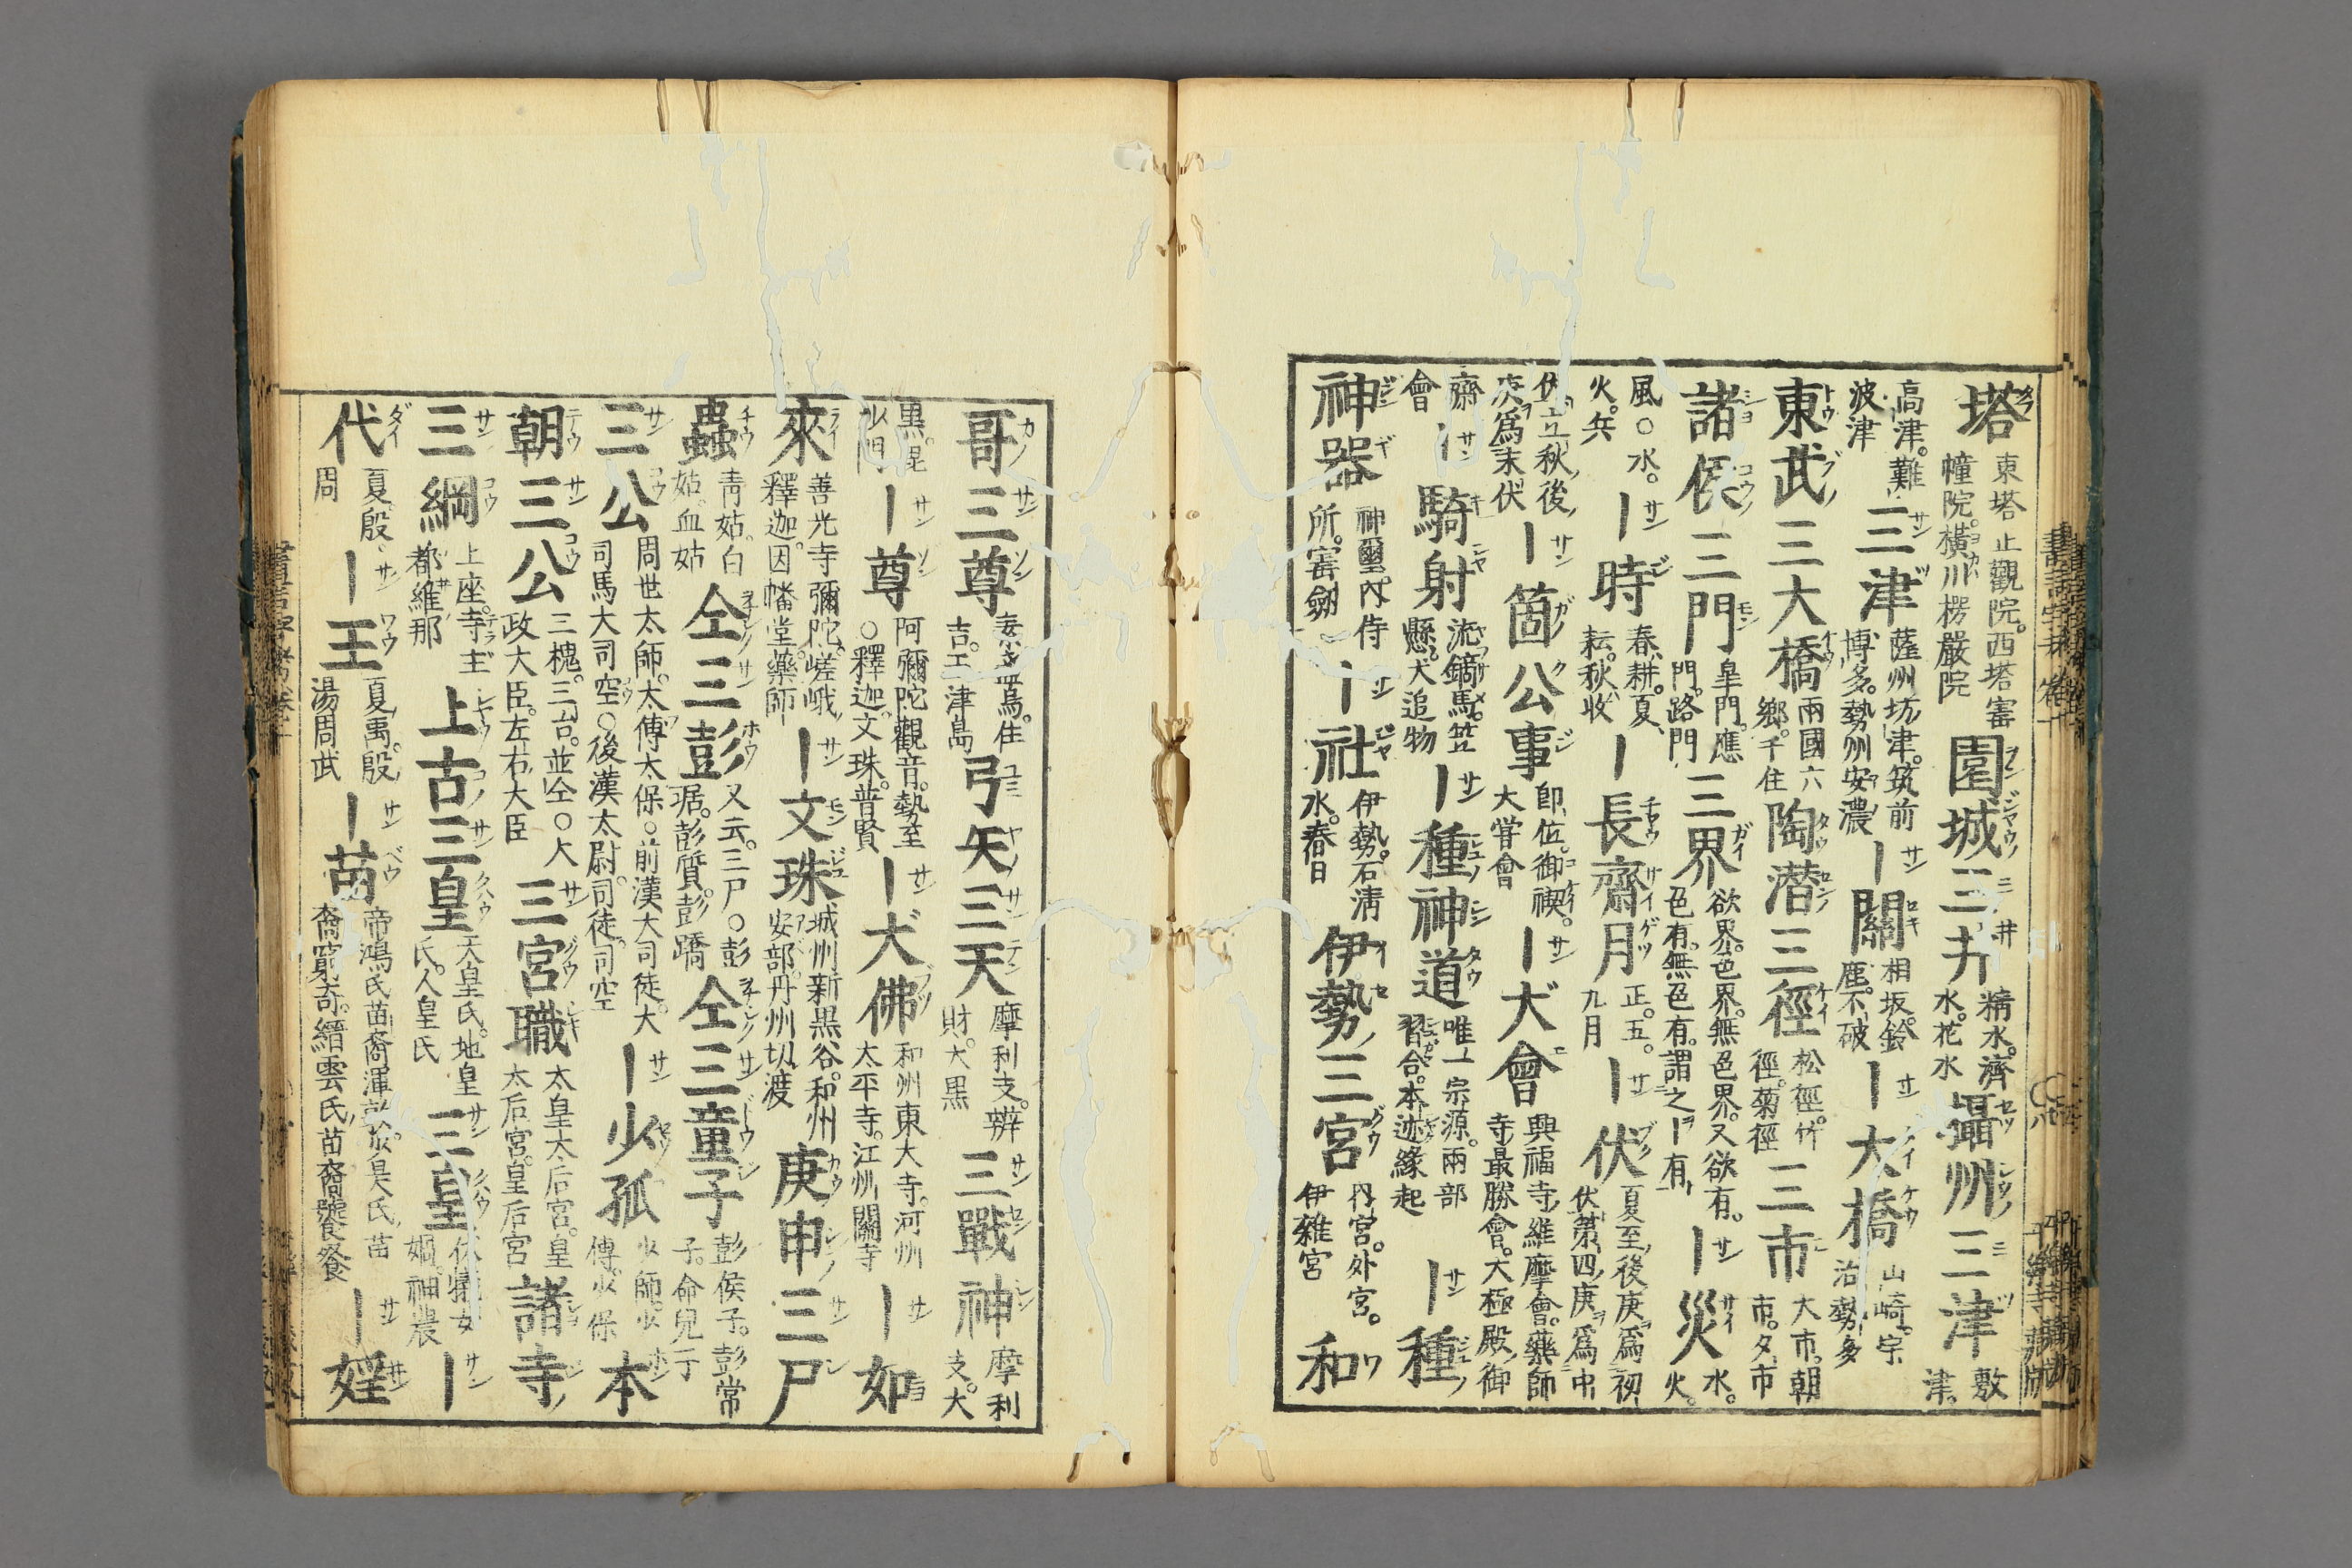 塔 東塔止觀院。西塔審幢院。橫川楞嚴院 園城三井 精水。濟水。花水 攝州三津 敷津。
高津。難波津 三津 薩州坊津。筑前博多。勢州安濃 ｜關 相坂。鈴鹿。不破 ｜大橋 山崎。宇治。勢多
東武三大橋 兩國。六鄉。千住 陶潜三徑 松徑。竹徑。菊徑 三市 大市。朝市。夕市
諸侯三門 皐門。應門。路門 三界 欲界。色界。無色界。又欲有。色有。無色有。謂之｜有 ｜災 水。火。
風。○水。火。兵 ｜時 春耕。夏耘。秋收 ｜長齋月 正。五。九月 ｜伏 夏至後庚爲初伏。第四庚爲中
伏。立秋後庚爲末伏 ｜箇公事 卽位。御禊。大嘗會 ｜大會 興福寺維摩會。藥師寺最勝會。大極殿御
齋會 ｜騎射 流鏑馬。笠懸。犬追物 ｜種神道 唯一宗源。兩部習合。本迹緣起 ｜種
神器 神璽。內侍所。寳劔 ｜社 伊勢。石淸水。春日 伊勢三宮 內宮。外宮。伊雜宮 和
哥三尊 住吉。玉津島 弓矢三天 摩利支。辨財。大黑 三戰神 摩利支。大
黑。毘沙門 ｜尊 阿彌陀。觀音。勢至○釋迦。文珠。普賢 ｜大佛 和州東大寺。河州太平寺。江州關寺 ｜如
來 善光寺彌陀。嵯峨釋迦。因幡堂藥師 ｜文珠 城州新黑谷。和州安部。丹州切渡 庚申三尸
蟲 靑姑。白姑。血姑 仝三彭 又云三尸○彭琚。彭質。彭蹻 仝三童子 彭侯子。彭常子。命兒子
三公 周世太師。太傅。太保○前漢大司徒。大司馬。大司空○後漢太尉。司徒。司空 ｜少孤 少師。少傅。少保 本
朝三公 三槐。三台。並仝○太政大臣。左右大臣 三宮職 太皇太后宮。皇太后宮。皇后宮 諸寺
三綱 上座。寺主。都維那 上古三皇 天皇氏。地皇氏。人皇氏 三皇 伏犧。女媧。神農 ｜
代 夏。殷。周 ｜王 夏禹。殷湯。周武 ｜苗 帝鴻氏苗裔渾敦。少昊氏苗裔窮奇。縉雲氏苗裔饕餮 ｜婬